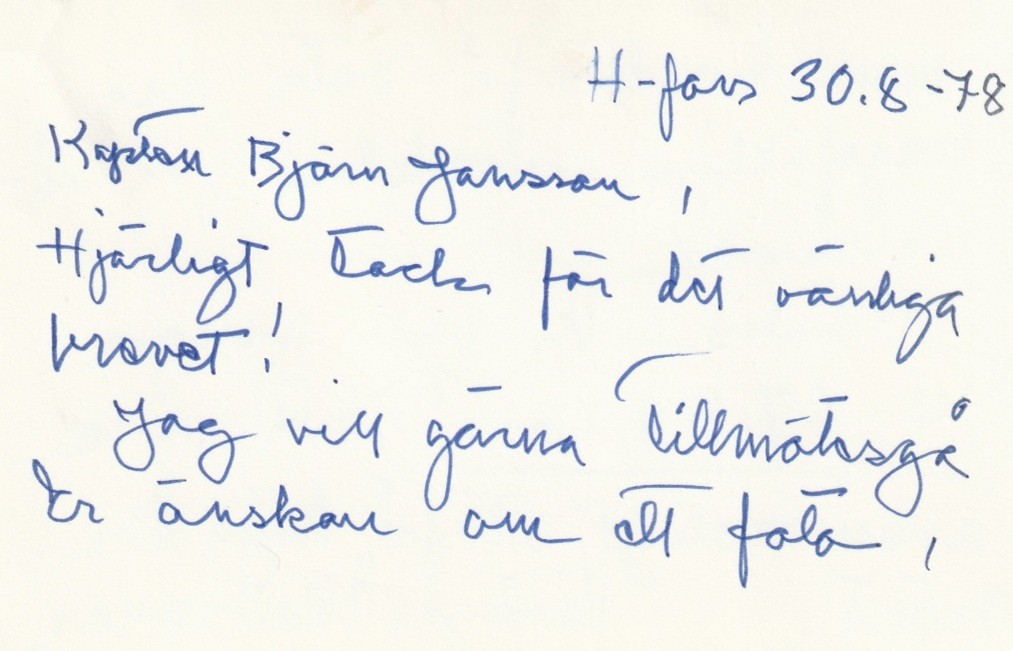 H-fors 30.8-78
Kapten Björn Jansson,
Hjärtligt tack för det vänliga
brevet!
Jag vill gärna tillmötesgå
Er önskan om ett foto,